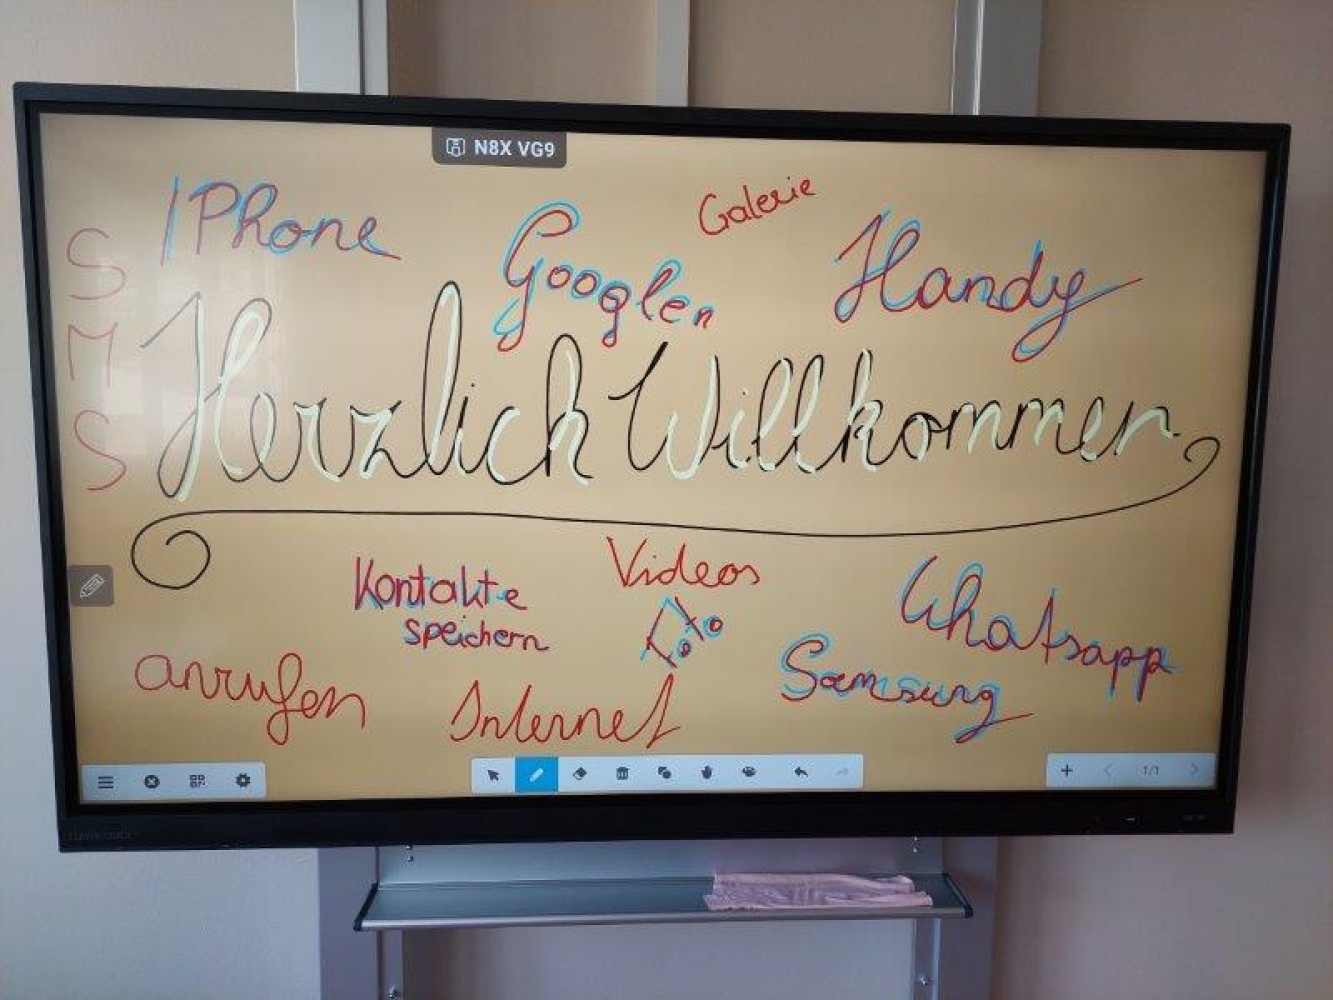 N8X VG9
IPhone
Googlen
Galerie
Handy
SMS
Herzlich Willkommen
Kontakte
speichern
Videos
Whatsapp
anrufen
Internet
Samsung
1/1